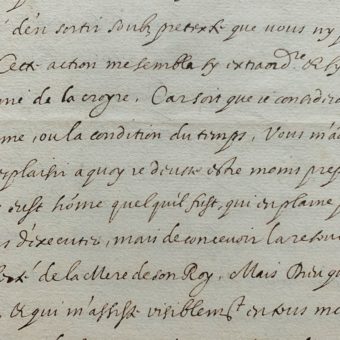 d'en sortir soubz pretexte que vous n'y p
Cette action me sembla sy extraord.re & sy
de la croyre, Car soit que ie considera
me, ou la condition du temps, Vous m'a
esplaisir a quoy ie deusse estre moins prep
eust hôme quelqu'il fust, qui en plaine p
d'executer, mais de concevoir la resou
de la Mere de son Roy, Mais Dieu qu
& qui m'assiste visiblem.t en tous me